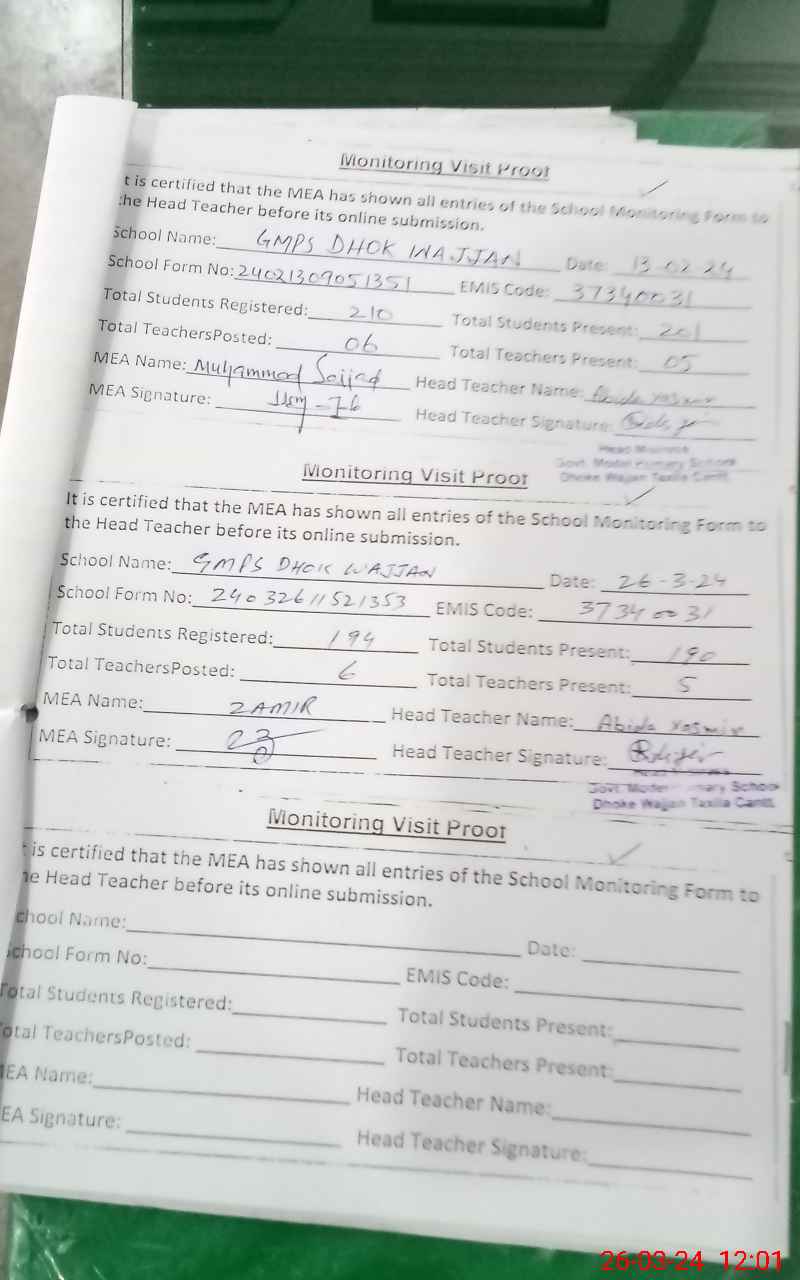 Monitoring Visit Proof
t is certified that the MEA has shown all entries of the School Monitoring Form to
the Head Teacher before its online submission.
School Name: GMPS DHOK WAJJAN Date: 13-02-24
School Form No: 24021309051351 EMIS Code: 37340031
Total Students Registered: 210 Total Students Present: 201
Total TeachersPosted: 06 Total Teachers Present: 05
MEA Name: Muhammad Sajjad Head Teacher Name: Abida Yasmin
MEA Signature: Head Teacher Signature:
Govt. Model Primary School
Dhoke Wajjan Taxila Cantt.
Monitoring Visit Proof
It is certified that the MEA has shown all entries of the School Monitoring Form to
the Head Teacher before its online submission.
School Name: GMPS DHOK WAJJAN Date: 26-3-24
School Form No: 24032611521353 EMIS Code: 37340031
Total Students Registered: 194 Total Students Present: 190
Total TeachersPosted: 6 Total Teachers Present: 5
MEA Name: ZAMIR Head Teacher Name: Abida Yasmin
MEA Signature: Head Teacher Signature:
Govt. Model Primary School
Dhoke Wajjan Taxila Cantt.
Monitoring Visit Proof
t is certified that the MEA has shown all entries of the School Monitoring Form to
he Head Teacher before its online submission.
chool Name: Date:
School Form No: EMIS Code:
Total Students Registered: Total Students Present:
Total TeachersPosted: Total Teachers Present:
MEA Name: Head Teacher Name:
EA Signature: Head Teacher Signature:
26-03-24 12:01